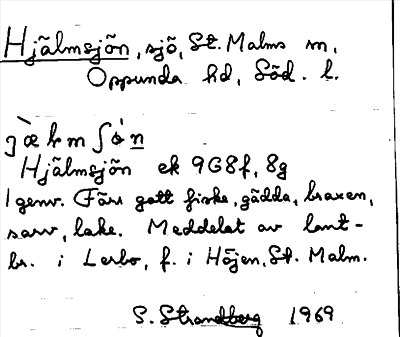 Hjälmsjön, sjö, St. Malms sn,
Oppunda hd, Söd. l.
Hjälmsjön ek 9G8f, 8g
I genv. Förr gott fiske, gädda, braxen,
sarv, lake. Meddelat av lant-
br. i Lerbo, f. i Höjen, St. Malm.
S. Strandberg 1969